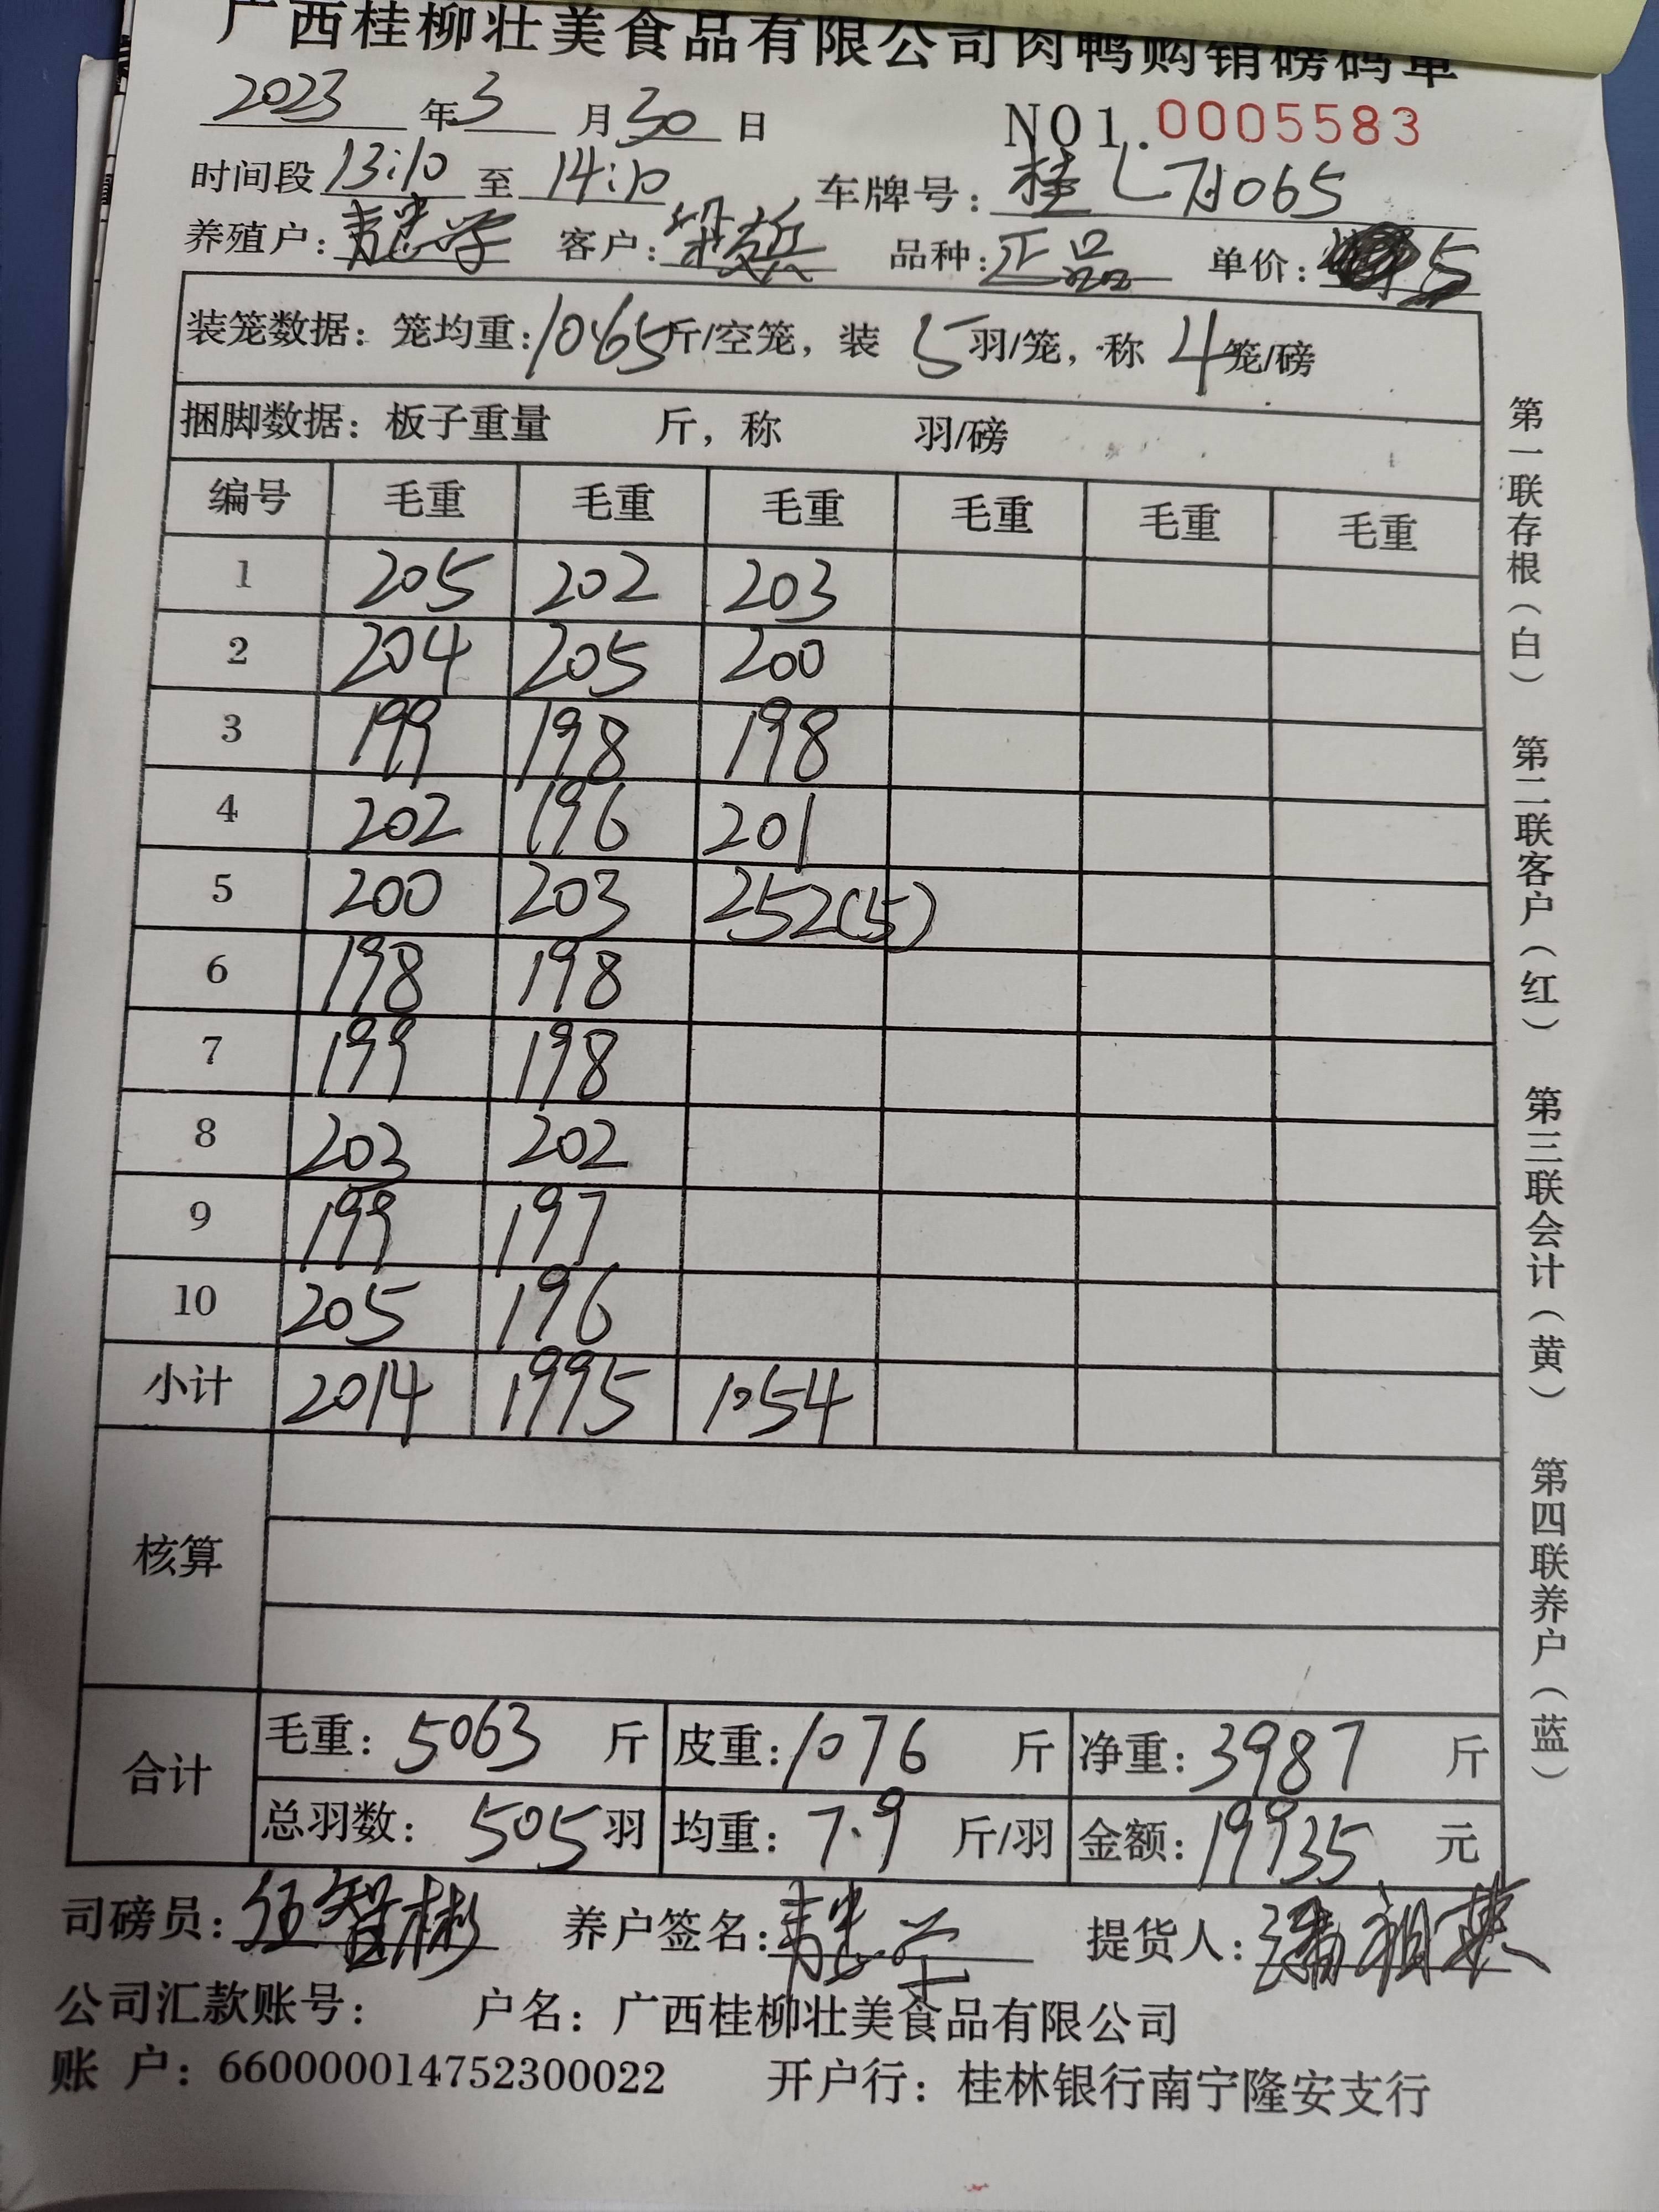 广西桂柳壮美食品有限公司肉鸭购销磅码单
2023 年 3 月 30 日 NO1.0005583
时间段 13:10 至 14:10 车牌号: 桂L 065
养殖户: 客户: 品种: 正品 单价: 5
装笼数据: 笼均重: 10.65 斤/空笼, 装 5 羽/笼, 称 4 笼/磅
捆脚数据: 板子重量 斤, 称 羽/磅
编号 毛重 毛重 毛重 毛重 毛重 毛重
1 205 202 203
2 204 205 200
3 199 198 198
4 202 196 201
5 200 203 252(5)
6 198 198
7 199 198
8 203 202
9 199 197
10 205 196
小计 2014 1995 1054
核算
合计
毛重: 5063 斤 皮重: 1076 斤 净重: 3987 斤
总羽数: 505 羽 均重: 7.9 斤/羽 金额: 19935 元
司磅员: 伍智彬 养户签名: 提货人:
公司汇款账号: 户名: 广西桂柳壮美食品有限公司
账 户: 660000014752300022 开户行: 桂林银行南宁隆安支行
第一联存根（白） 第二联客户（红） 第三联会计（黄） 第四联养户（蓝）